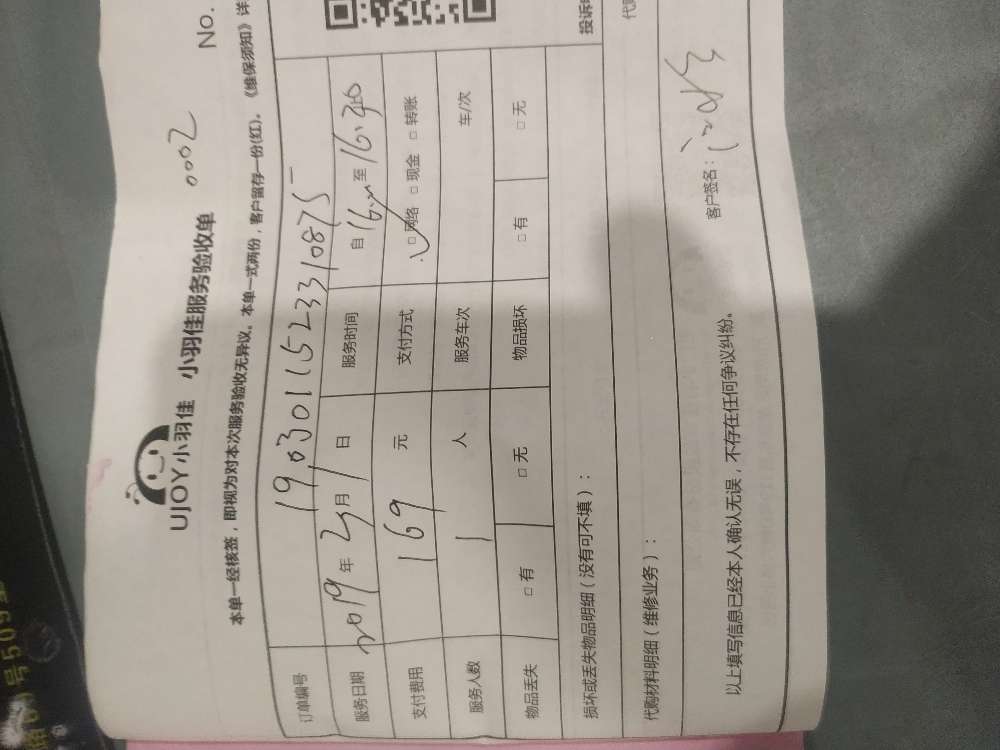 UJOY小羽佳 小羽佳服务验收单 0002 No.
本单一经核签，即视为对本次服务验收无异议。本单一式两份，客户留存一份(红)。《维保须知》详
订单编号 1903011523310875
服务日期 2019 年 3 月 1 日 服务时间 自 至 16:30
支付费用 169 元 支付方式 □网络 □现金 □转账
服务人数 1 人 服务车次 车/次
物品丢失 □有 □无 物品损坏 □有 □无
损坏或丢失物品明细（没有可不填）： 投诉
代购材料明细（维修业务）：
客户签名：
以上填写信息已经本人确认无误，不存在任何争议纠纷。
号509